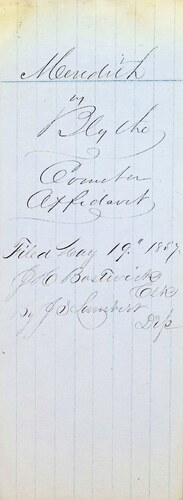 Meredith
vs
Blythe
Counter
Affidavit
Filed May 19th 1857
J C Bostwick
Clk
by J S Lambert
Dep